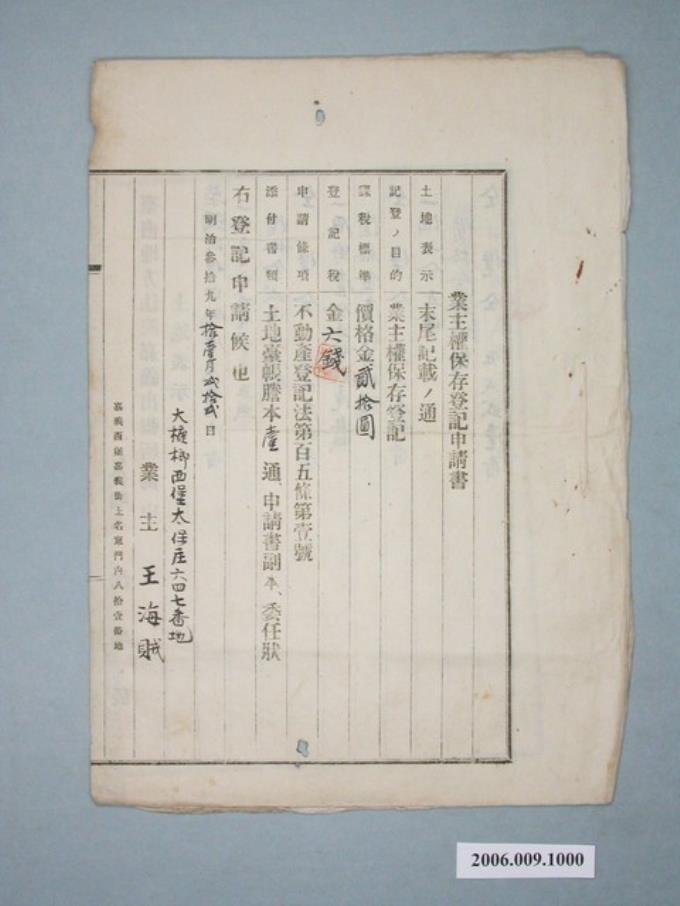 業主權保存登記申請書
土地表示 末尾記載ノ通
記登ノ目的 業主權保存登記
課稅標準 價格金貳拾圓
登記稅 金六錢
申請條項 不動產登記法第百五條第壹號
添付書類 土地臺帳謄本壹通、申請書副本、委任狀
右登記申請候也
明治參拾九年拾壹月貳拾貳日
大槺榔西堡太保庄六四七番地
業主 王海賊
嘉義西堡嘉義街土名東門內八拾壹番地
2006.009.1000